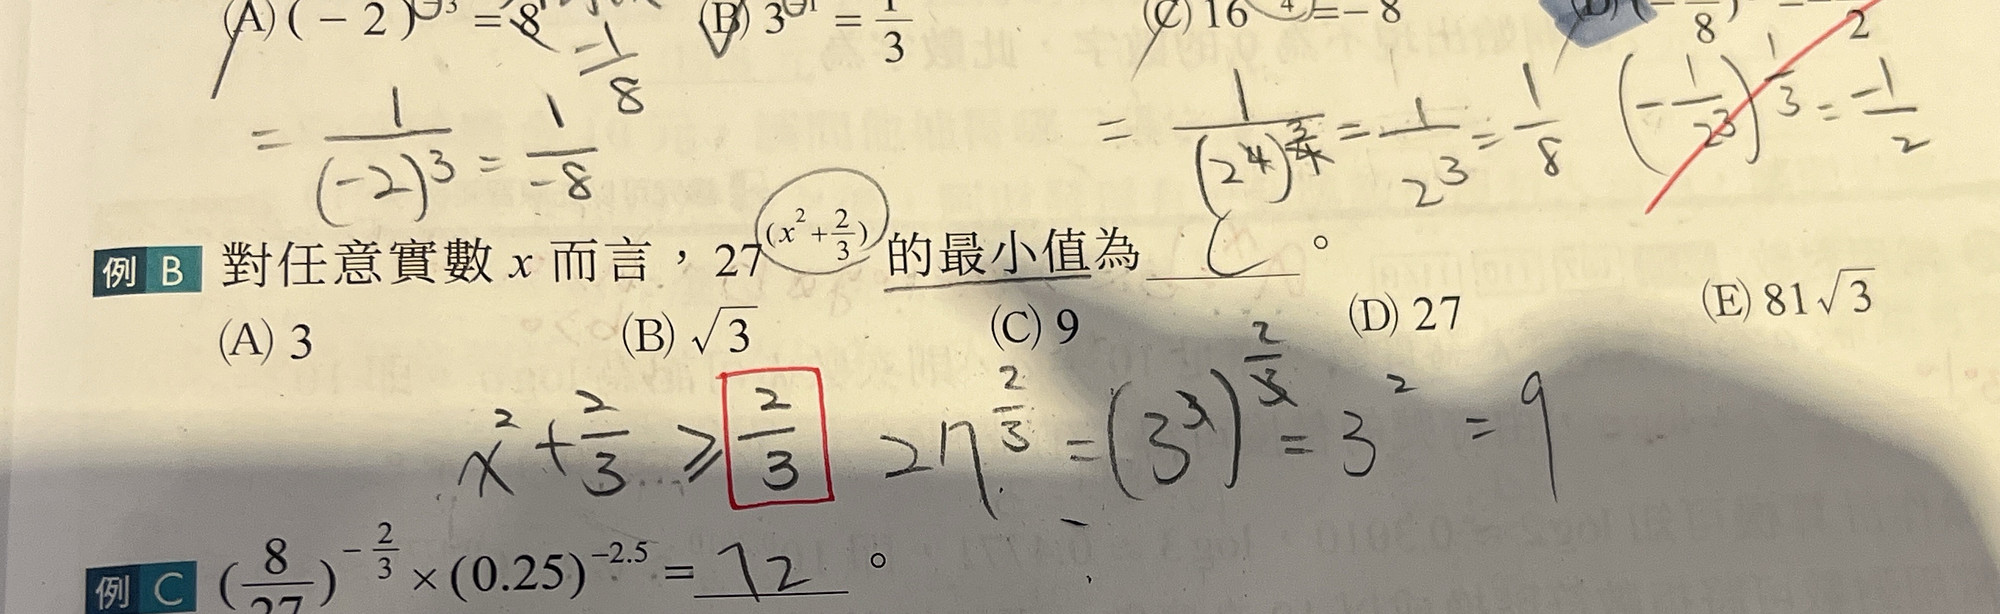 (A) (-2)^{-3} = 8 (B) 3^{-1} = 1/3 (C) 16 = -8
-1/8
= 1/(-2)^3 = 1/-8 = 1/(2^4)^{3/4} = 1/2^3 = 1/8 (-1/2^3)^{1/3} = -1/2
例 B 對任意實數 x 而言，27^{(x^2+2/3)} 的最小值為 C 。
(A) 3 (B) √3 (C) 9 (D) 27 (E) 81√3
x^2 + 2/3 ≥ 2/3 27^{2/3} = (3^3)^{2/3} = 3^2 = 9
例 C (8/27)^{-2/3} × (0.25)^{-2.5} = 72 。